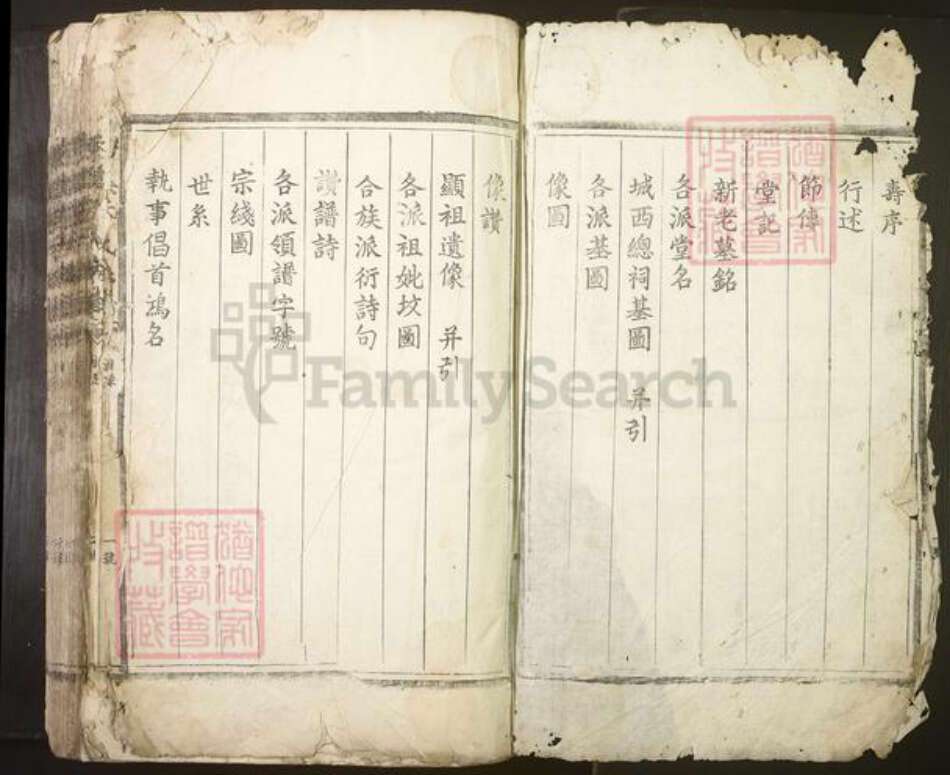 壽序
行述
節傳
堂記
新老墓銘
各派堂名
城西總祠基圖 并引
各派基圖
像圖
像讚
顯祖遺像 并引
各派祖妣坟圖
合族派衍詩句
讚譜詩
各派領譜字號
宗綫圖
世系
執事倡首鴻名
一號
FamilySearch
譜學會